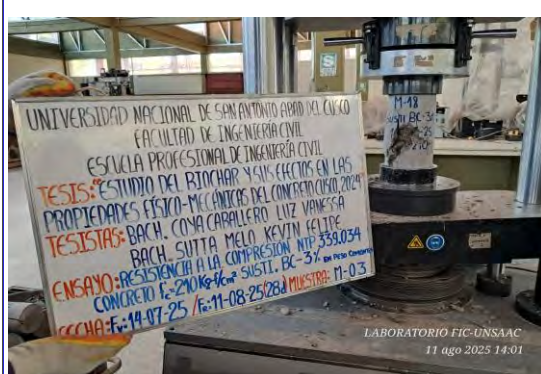 UNIVERSIDAD NACIONAL DE SAN ANTONIO ABAD DEL CUSCO
FACULTAD DE INGENIERÍA CIVIL
ESCUELA PROFESIONAL DE INGENIERÍA CIVIL
TESIS: "ESTUDIO DEL BIOCHAR Y SUS EFECTOS EN LAS
PROPIEDADES FÍSICO-MECÁNICAS DEL CONCRETO CUSCO, 2024"
TESISTAS: BACH. COYA CABALLERO LUZ VANESSA
BACH. SUTTA MELO KEVIN FELIPE
ENSAYO: RESISTENCIA A LA COMPRESION NTP 339.034
CONCRETO f'c=210Kg-f/cm² SUSTI. BC-3% EN PESO
FECHA: Fv: 14-07-25 / FR: 11-08-25 (28d) MUESTRA: M-03
M-18
SUSTI BC-3%
LABORATORIO FIC-UNSAAC
11 ago 2025 14:01